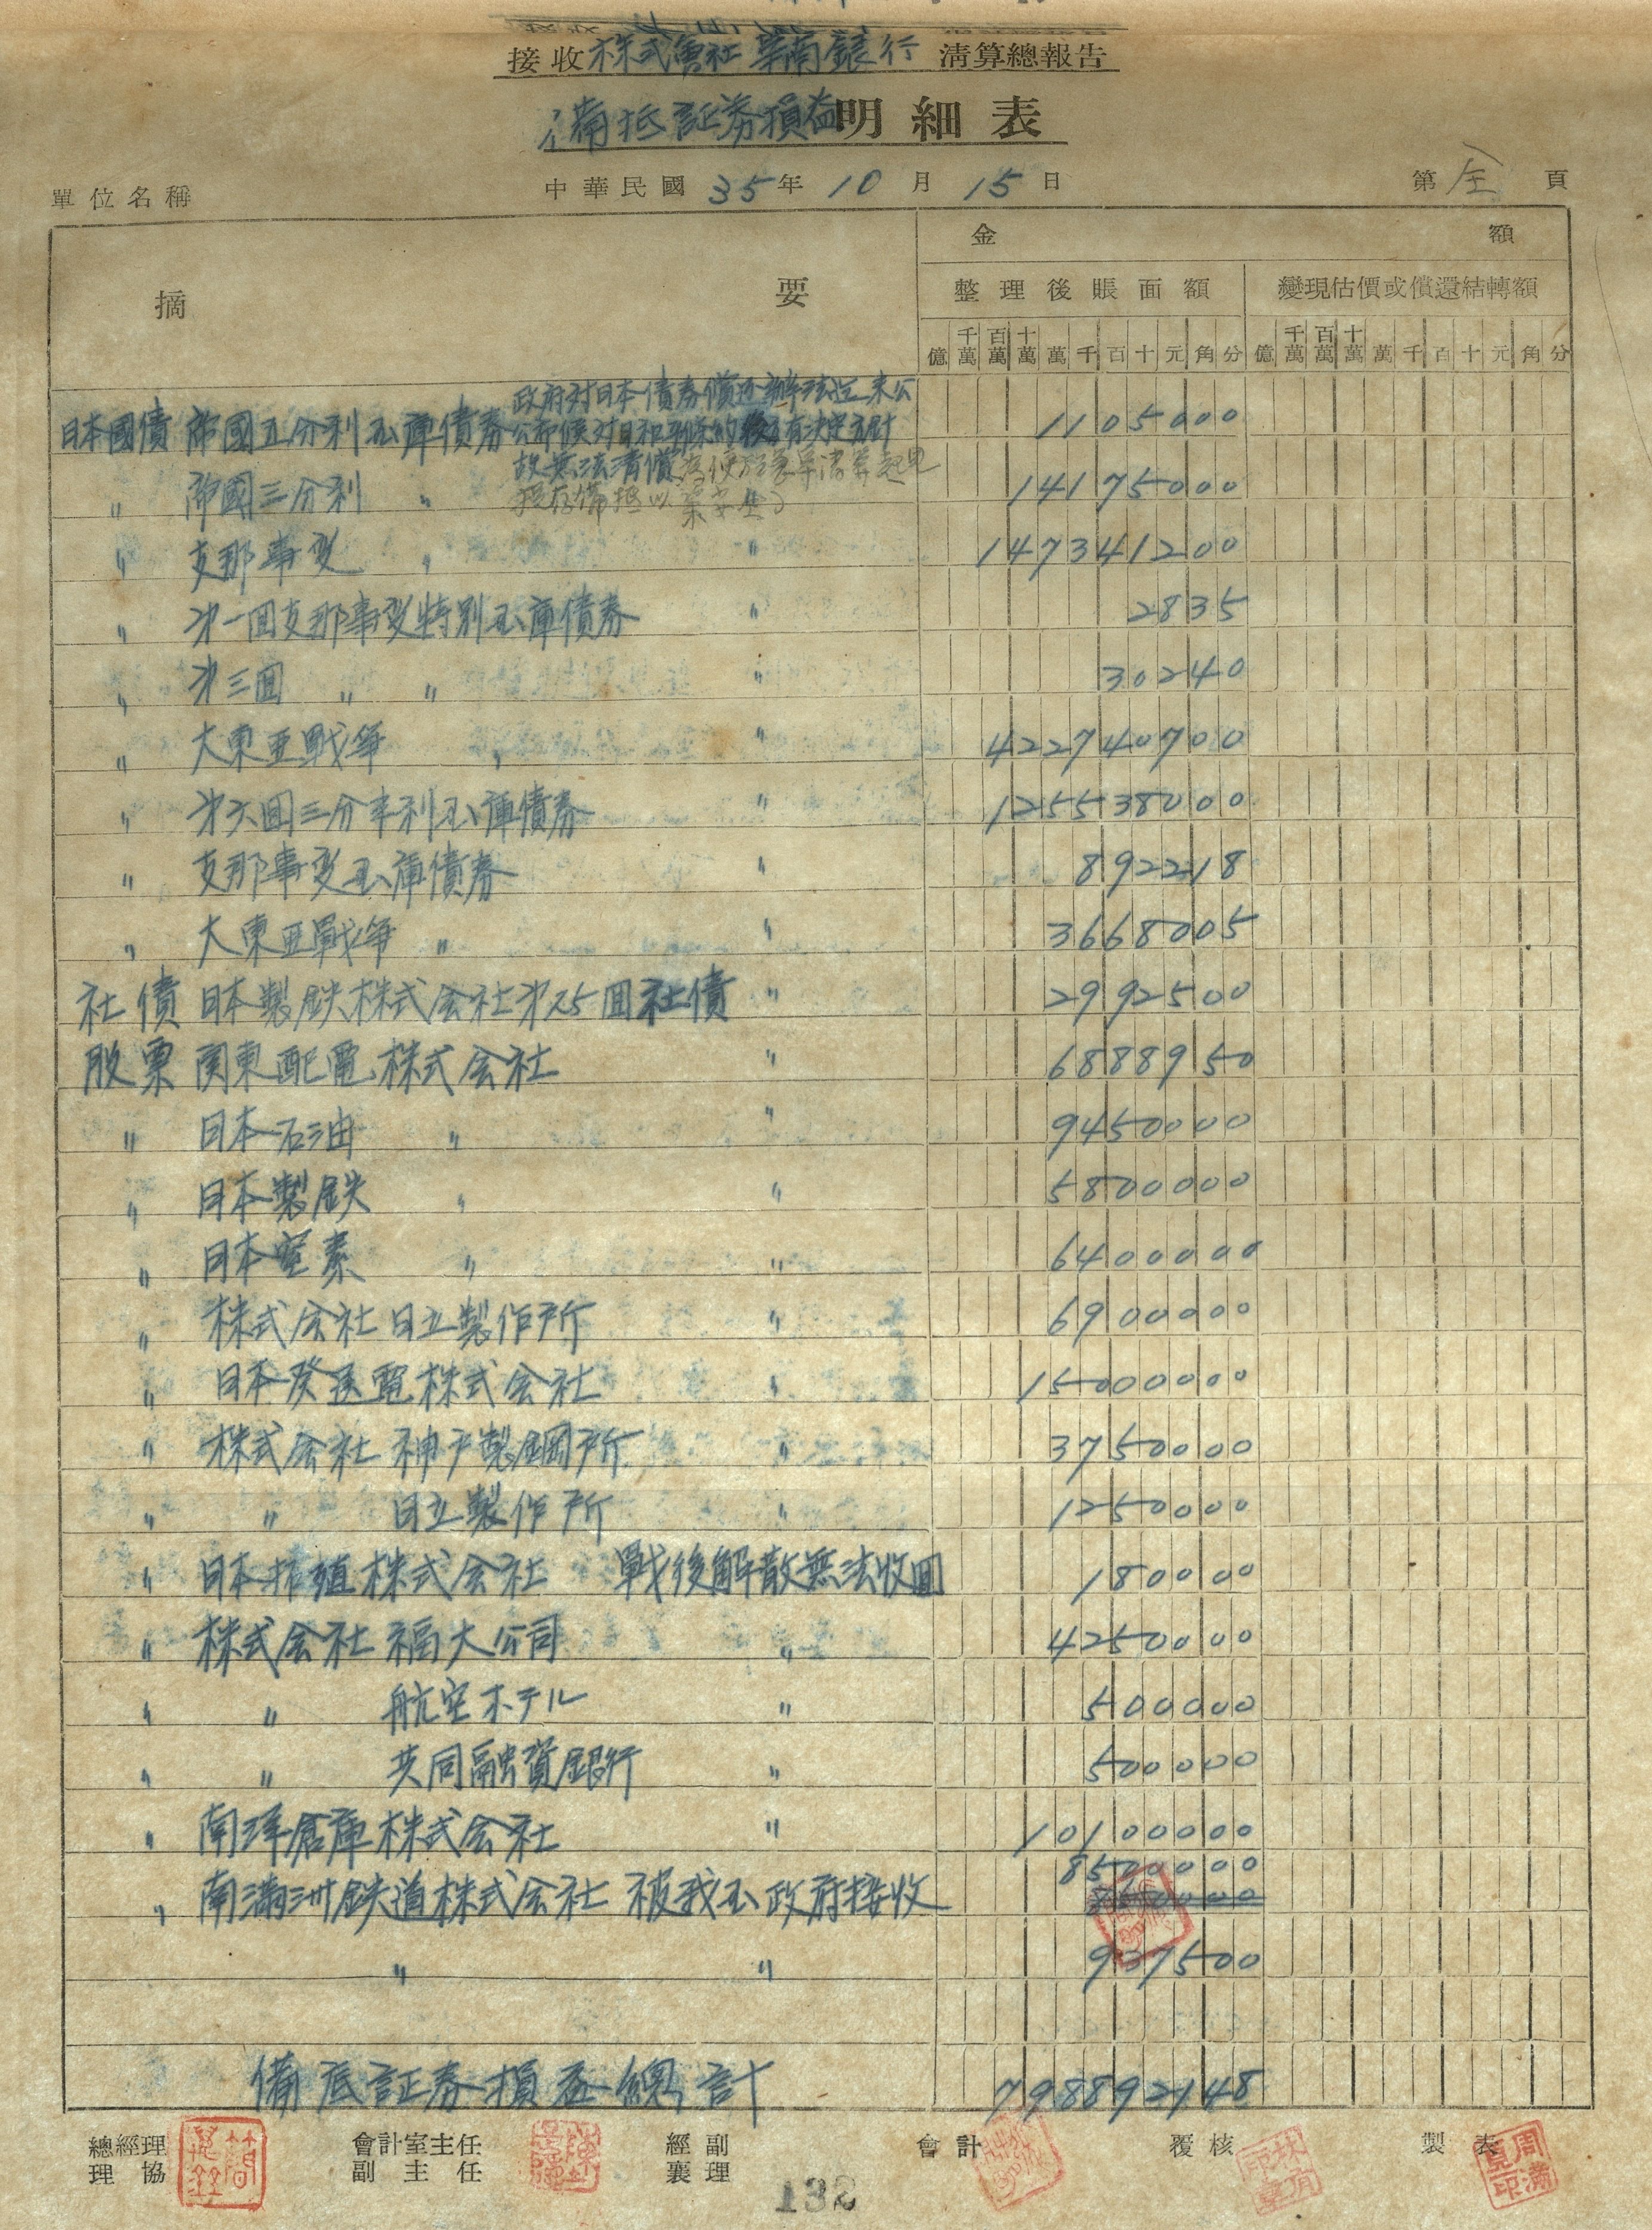 接收株式會社華南銀行清算總報告
備抵証券損益明細表
單位名稱 中華民國35年10月15日 第全頁
摘要 金額
整理後賬面額 變現估價或償還結轉額
億 千萬 百萬 十萬 萬 千 百 十 元 角 分 億 千萬 百萬 十萬 萬 千 百 十 元 角 分
政府对日本債券償还辦法迄未公
日本國債 帝國五分利公庫債券 公布候对日和平條約後方有決定方針 1105000
故無法清償為便於急早清算起見
〃 帝國三分利 〃 14175000
〃 支那事変 〃 〃 147341200
〃 第一回支那事変特別公庫債券 〃 2835
〃 第三回 〃 〃 〃 30240
〃 大東亜戰爭 〃 〃 422740700
〃 第六回三分半利公庫債券 〃 125538000
〃 支那事変公庫債券 〃 892218
〃 大東亜戰爭 〃 〃 3668005
社債 日本製鉄株式会社第25回社債 〃 2992500
股票 関東配電株式会社 〃 6888950
〃 日本石油 〃 〃 9450000
〃 日本製鉄 〃 〃 5800000
〃 日本窒素 〃 〃 6400000
〃 株式会社日立製作所 〃 6900000
〃 日本発送電株式会社 〃 15000000
〃 株式会社神戸製鋼所 〃 3750000
〃 〃 日立製作所 〃 1250000
〃 日本拓殖株式会社 戰後解散無法收回 180000
〃 株式会社福大公司 〃 4250000
〃 〃 航空ホテル 〃 500000
〃 〃 共同融資銀行 〃 500000
〃 南洋倉庫株式会社 〃 10100000
8500000
〃 南滿洲鉄道株式会社 被我公政府接收
〃 〃 937500
備底証券損益總計 798892148
總經理 會計室主任 經副 會計 覆核 製表
理協 副主任 襄理
132